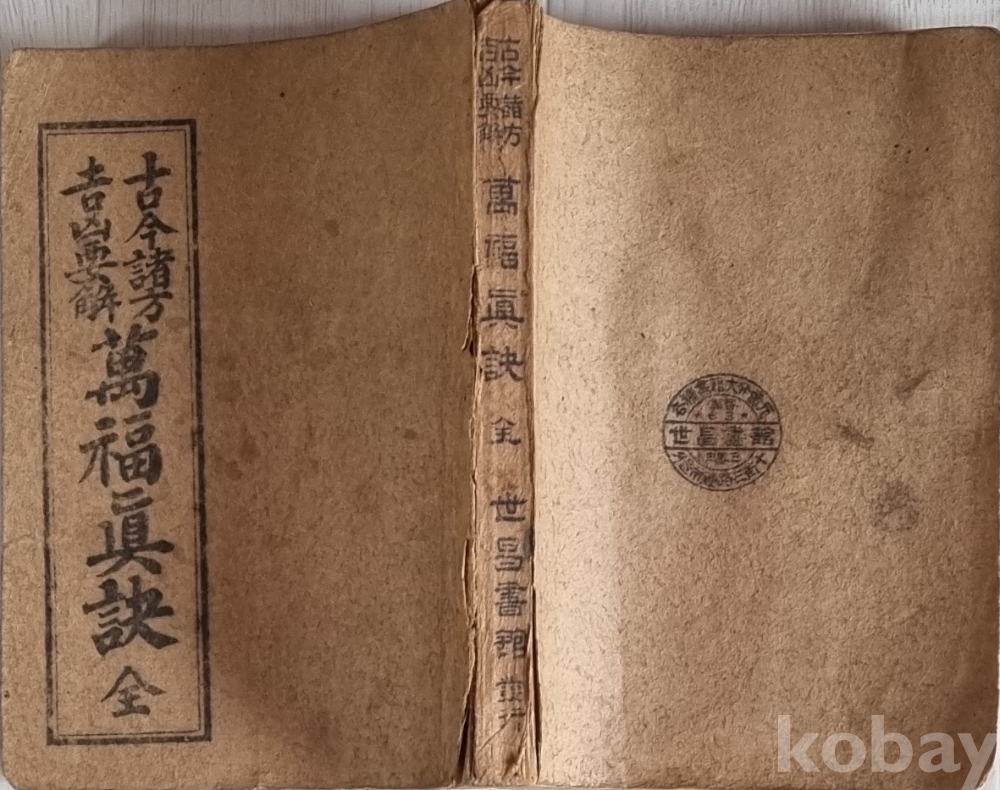 古今諸方
吉凶要解
萬福眞訣 全
古今諸方
吉凶要解
萬福眞訣 全 世昌書館 發行
世昌書館
kobay